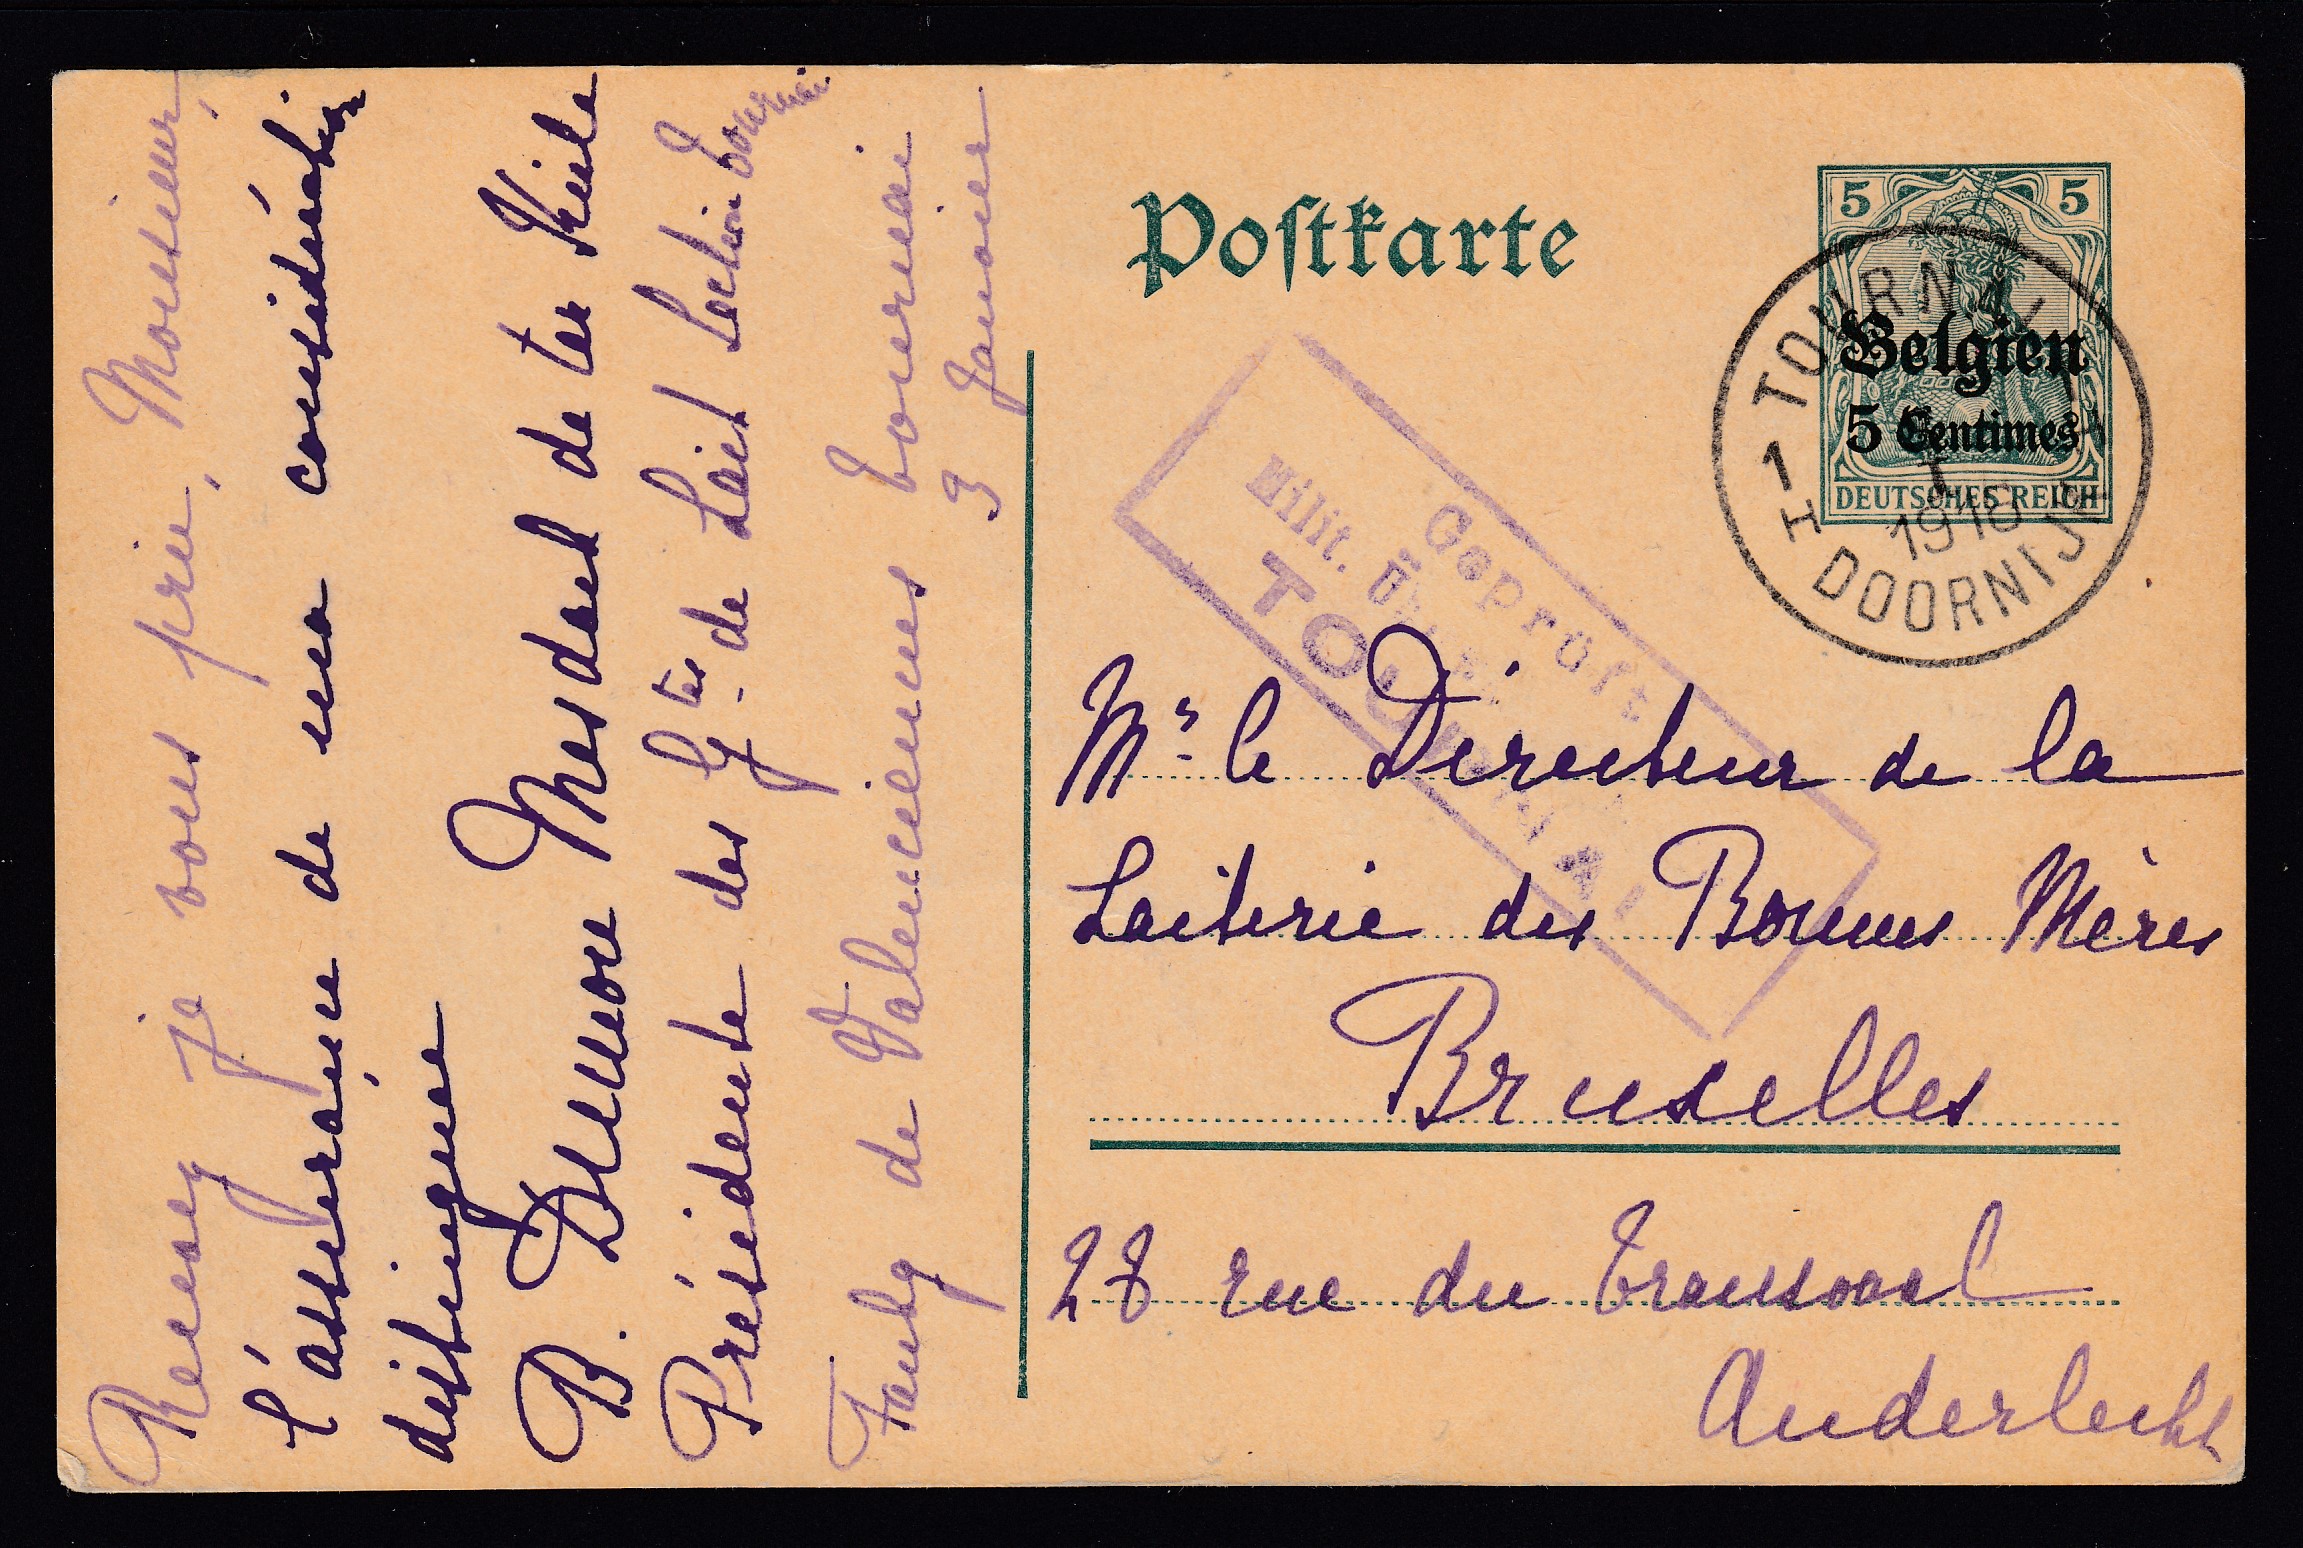 Recevez je vous prie, Monsieur,
l'assurance de ma considération
distinguée
B. Dumon Mesdach de ter Kiele
Présidente des Gttes de Lait Section Tournai
Faubg de Valenciennes Tournai
3 Janvier
Postkarte
5 5
Belgien
5 Centimes
DEUTSCHES REICH
TOURNAI
1 H
I
1916
DOORNIJK
Geprüft
Milit.
TOURNAI
Mr le Directeur de la
Laiterie des Bonnes Mères
Bruxelles
28 rue du Transvaal
Anderlecht